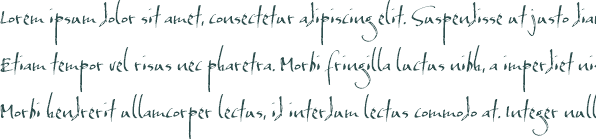 Lorem ipsum dolor sit amet, consectetur adipiscing elit. Suspendisse ut justo diam
Etiam tempor vel risus nec pharetra. Morbi fringilla luctus nibh, a imperdiet ni
Morbi hendrerit ullamcorper lectus, id interdum lectus commodo at. Integer null